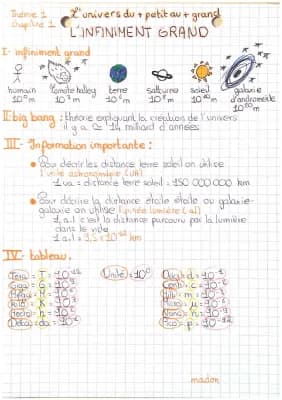 Thème 1
Chapitre 1
L'univers du + petit au + grand
L'INFINIMENT GRAND
I- infiniment grand
humain
comète halley
terre
saturne
soleil
galaxie
d'andromède
II big bang : théorie expliquant la création de l'univers
il y a ≈ 14 milliard d'années
III- Information importante :
Pour décrire les distance terre soleil on utilise
l'unité astronomique (UA)
1 ua = distance terre soleil = 150 000 000 km
Pour décrire la distance étoile étoile ou galaxie-
galaxie on utilise l'année lumière (al)
1 a.l c'est la distance parcouru par la lumière
dans le vide
1 a.l = 9,5 × 10¹² km
IV- tableau.
Téra = T = 10¹²
Giga = G = 10⁹
Unité = 10⁰
Déci = d = 10⁻¹
Centi = c =
Milli = m =
Kilo = K =
Micro = μ =
Hecto = h =
Nano = n =
Déca = da =
Pico = p = 10⁻¹²